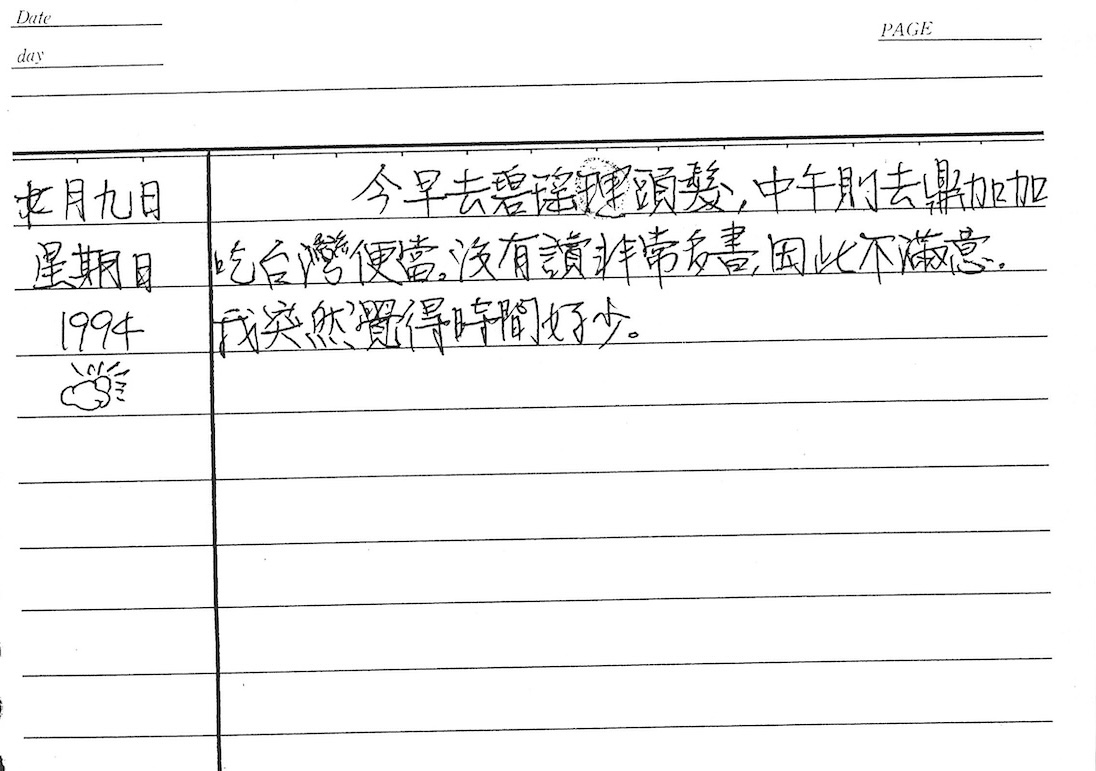 Date
day
PAGE
月九日
星期日
1994
今早去碧瑤理頭髮,中午則去鼎加加
吃台灣便當。沒有讀非常多書,因此不滿意.
我突然覺得時間好少。